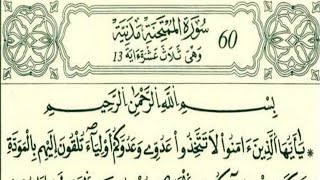 سُورَةُ الْمُمْتَحِنَةِ مَدَنِيَّةٌ
60
وَهِيَ ثَلَاثَ عَشْرَةَ ءَايَةً 13
بِسْمِ اللَّهِ الرَّحْمَٰنِ الرَّحِيمِ
يَٰأَيُّهَا الَّذِينَ ءَامَنُوا لَا تَتَّخِذُوا عَدُوِّي وَعَدُوَّكُمْ أَوْلِيَاءَ تُلْقُونَ إِلَيْهِم بِالْمَوَدَّةِ